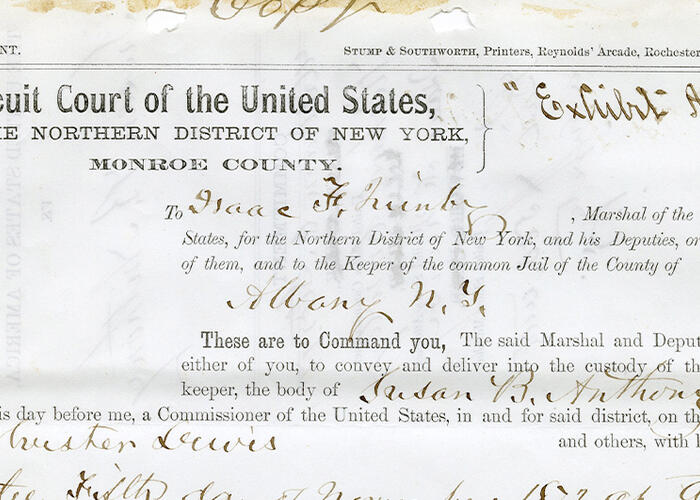 Copy
NT. STUMP & SOUTHWORTH, Printers, Reynolds' Arcade, Rochester
cuit Court of the United States,
HE NORTHERN DISTRICT OF NEW YORK,
MONROE COUNTY.
"Exhibit
To Isaac F. Quinby, Marshal of the
States, for the Northern District of New York, and his Deputies, or
of them, and to the Keeper of the common Jail of the County of
Albany N. Y.
These are to Command you, The said Marshal and Deput
either of you, to convey and deliver into the custody of th
keeper, the body of Susan B. Anthony
is day before me, a Commissioner of the United States, in and for said district, on th
lvester Lewis and others, with
Fifth day of November 187